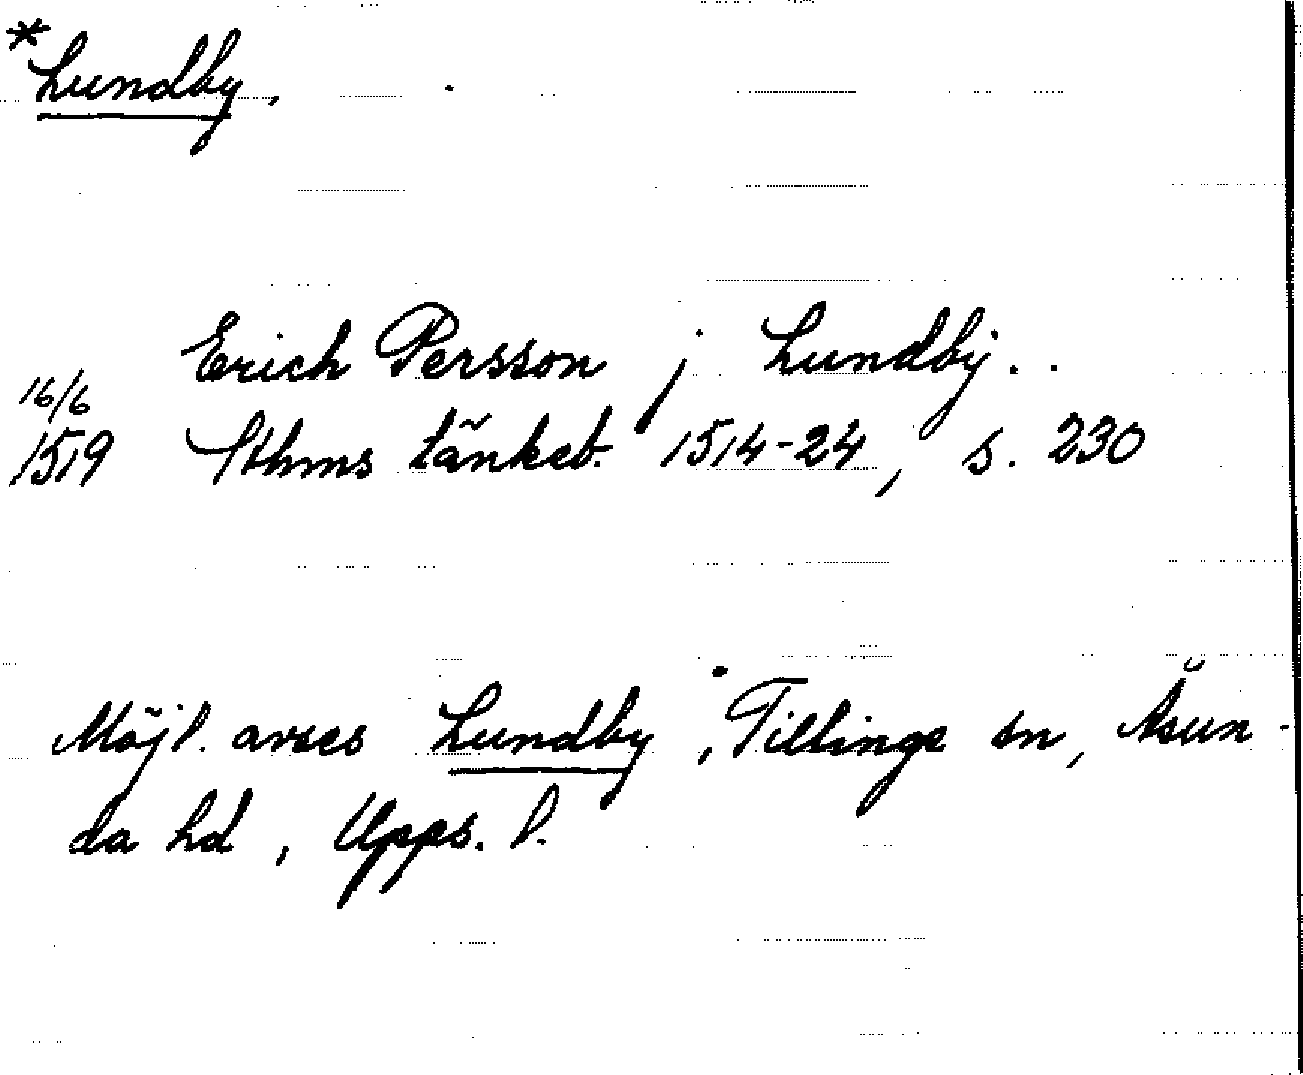 *Lundby,
Erich Persson j Lundbÿ..
16/6
1519 Sthms tänkeb. 1514-24, s. 230
Möjl. avses Lundby, Tillinge sn, Åsun-
da hd, Upps. l.